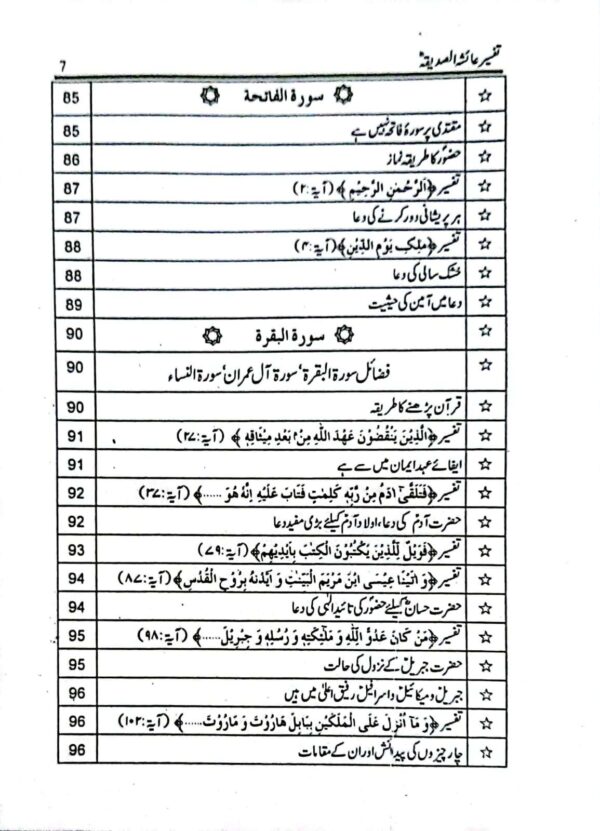 تفسیر عائشہ الصدیقہؓ 7
☆ سورۃ الفاتحة 85
☆ مقتدی پر سورۂ فاتحہ نہیں ہے 85
☆ حضورؐ کا طریقہ نماز 86
☆ تفسیر ﴿اَلرَّحْمٰنِ الرَّحِيْمِ﴾ (آیۃ:۲) 87
☆ ہر پریشانی دور کرنے کی دعا 87
☆ تفسیر ﴿مٰلِكِ يَوْمِ الدِّيْنِ﴾ (آیۃ:۴) 88
☆ خشک سالی کی دعا 88
☆ دعا میں آمین کی حیثیت 89
☆ سورۃ البقرة 90
☆ فضائل سورۃ البقرۃ، سورۃ آل عمران، سورۃ النساء 90
☆ قرآن پڑھنے کا طریقہ 90
☆ تفسیر ﴿الَّذِيْنَ يَنْقُضُوْنَ عَهْدَ اللّٰهِ مِنْۢ بَعْدِ مِيْثَاقِهٖ﴾ (آیۃ:۲۷) 91
☆ ایفائے عہد ایمان میں سے ہے 91
☆ تفسیر ﴿فَتَلَقّٰىٓ اٰدَمُ مِنْ رَّبِّهٖ كَلِمٰتٍ فَتَابَ عَلَيْهِ اِنَّهٗ هُوَ ......﴾ (آیۃ:۳۷) 92
☆ حضرت آدمؑ کی دعا، اولاد آدمؑ کیلئے بڑی مفید دعا 92
☆ تفسیر ﴿فَوَيْلٌ لِّلَّذِيْنَ يَكْتُبُوْنَ الْكِتٰبَ بِاَيْدِيْهِمْ﴾ (آیۃ:۷۹) 93
☆ تفسیر ﴿وَ اٰتَيْنَا عِيْسَى ابْنَ مَرْيَمَ الْبَيِّنٰتِ وَ اَيَّدْنٰهُ بِرُوْحِ الْقُدُسِ﴾ (آیۃ:۸۷) 94
☆ حضرت حسانؓ کیلئے حضورؐ کی تائید الٰہی کی دعا 94
☆ تفسیر ﴿مَنْ كَانَ عَدُوًّا لِّلّٰهِ وَ مَلٰٓئِكَتِهٖ وَ رُسُلِهٖ وَ جِبْرِيْلَ ......﴾ (آیۃ:۹۸) 95
☆ حضرت جبریلؑ کے نزول کی حالت 95
☆ جبریل و میکائیل و اسرافیل رفیق اعلیٰ میں ہیں 96
☆ تفسیر ﴿وَ مَآ اُنْزِلَ عَلَى الْمَلَكَيْنِ بِبَابِلَ هَارُوْتَ وَ مَارُوْتَ ......﴾ (آیۃ:۱۰۲) 96
☆ چار چیزوں کی پیدائش اور ان کے مقامات 96